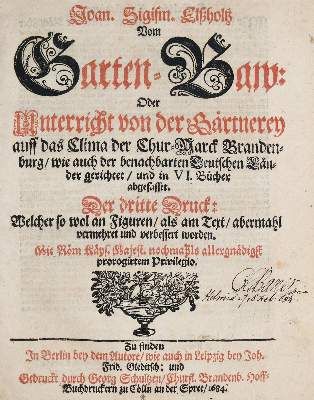 Joan. Sigism. Elßholtz
Vom
Garten-Baw:
Oder
Unterricht von der Gärtnerey
auff das Clima der Chur-Marck Branden-
burg / wie auch der benachbarten Teutschen Län-
der gerichtet / und in VI. Bücher
abgefasset.
Der dritte Druck:
Welcher so wol an Figuren / als am Text / abermahl
vermehret und verbessert worden.
Mit Röm. Käys. Majest. nochmahls allergnädigst
prorogirtem Privilegio.
Zu finden
In Berlin bey dem Autore / wie auch in Leipzig bey Joh.
Frid. Gleditsch: und
Gedruckt durch Georg Schultzen / Churfl. Brandenb. Hoff-
Buchdruckern zu Cölln an der Spree / 1684.